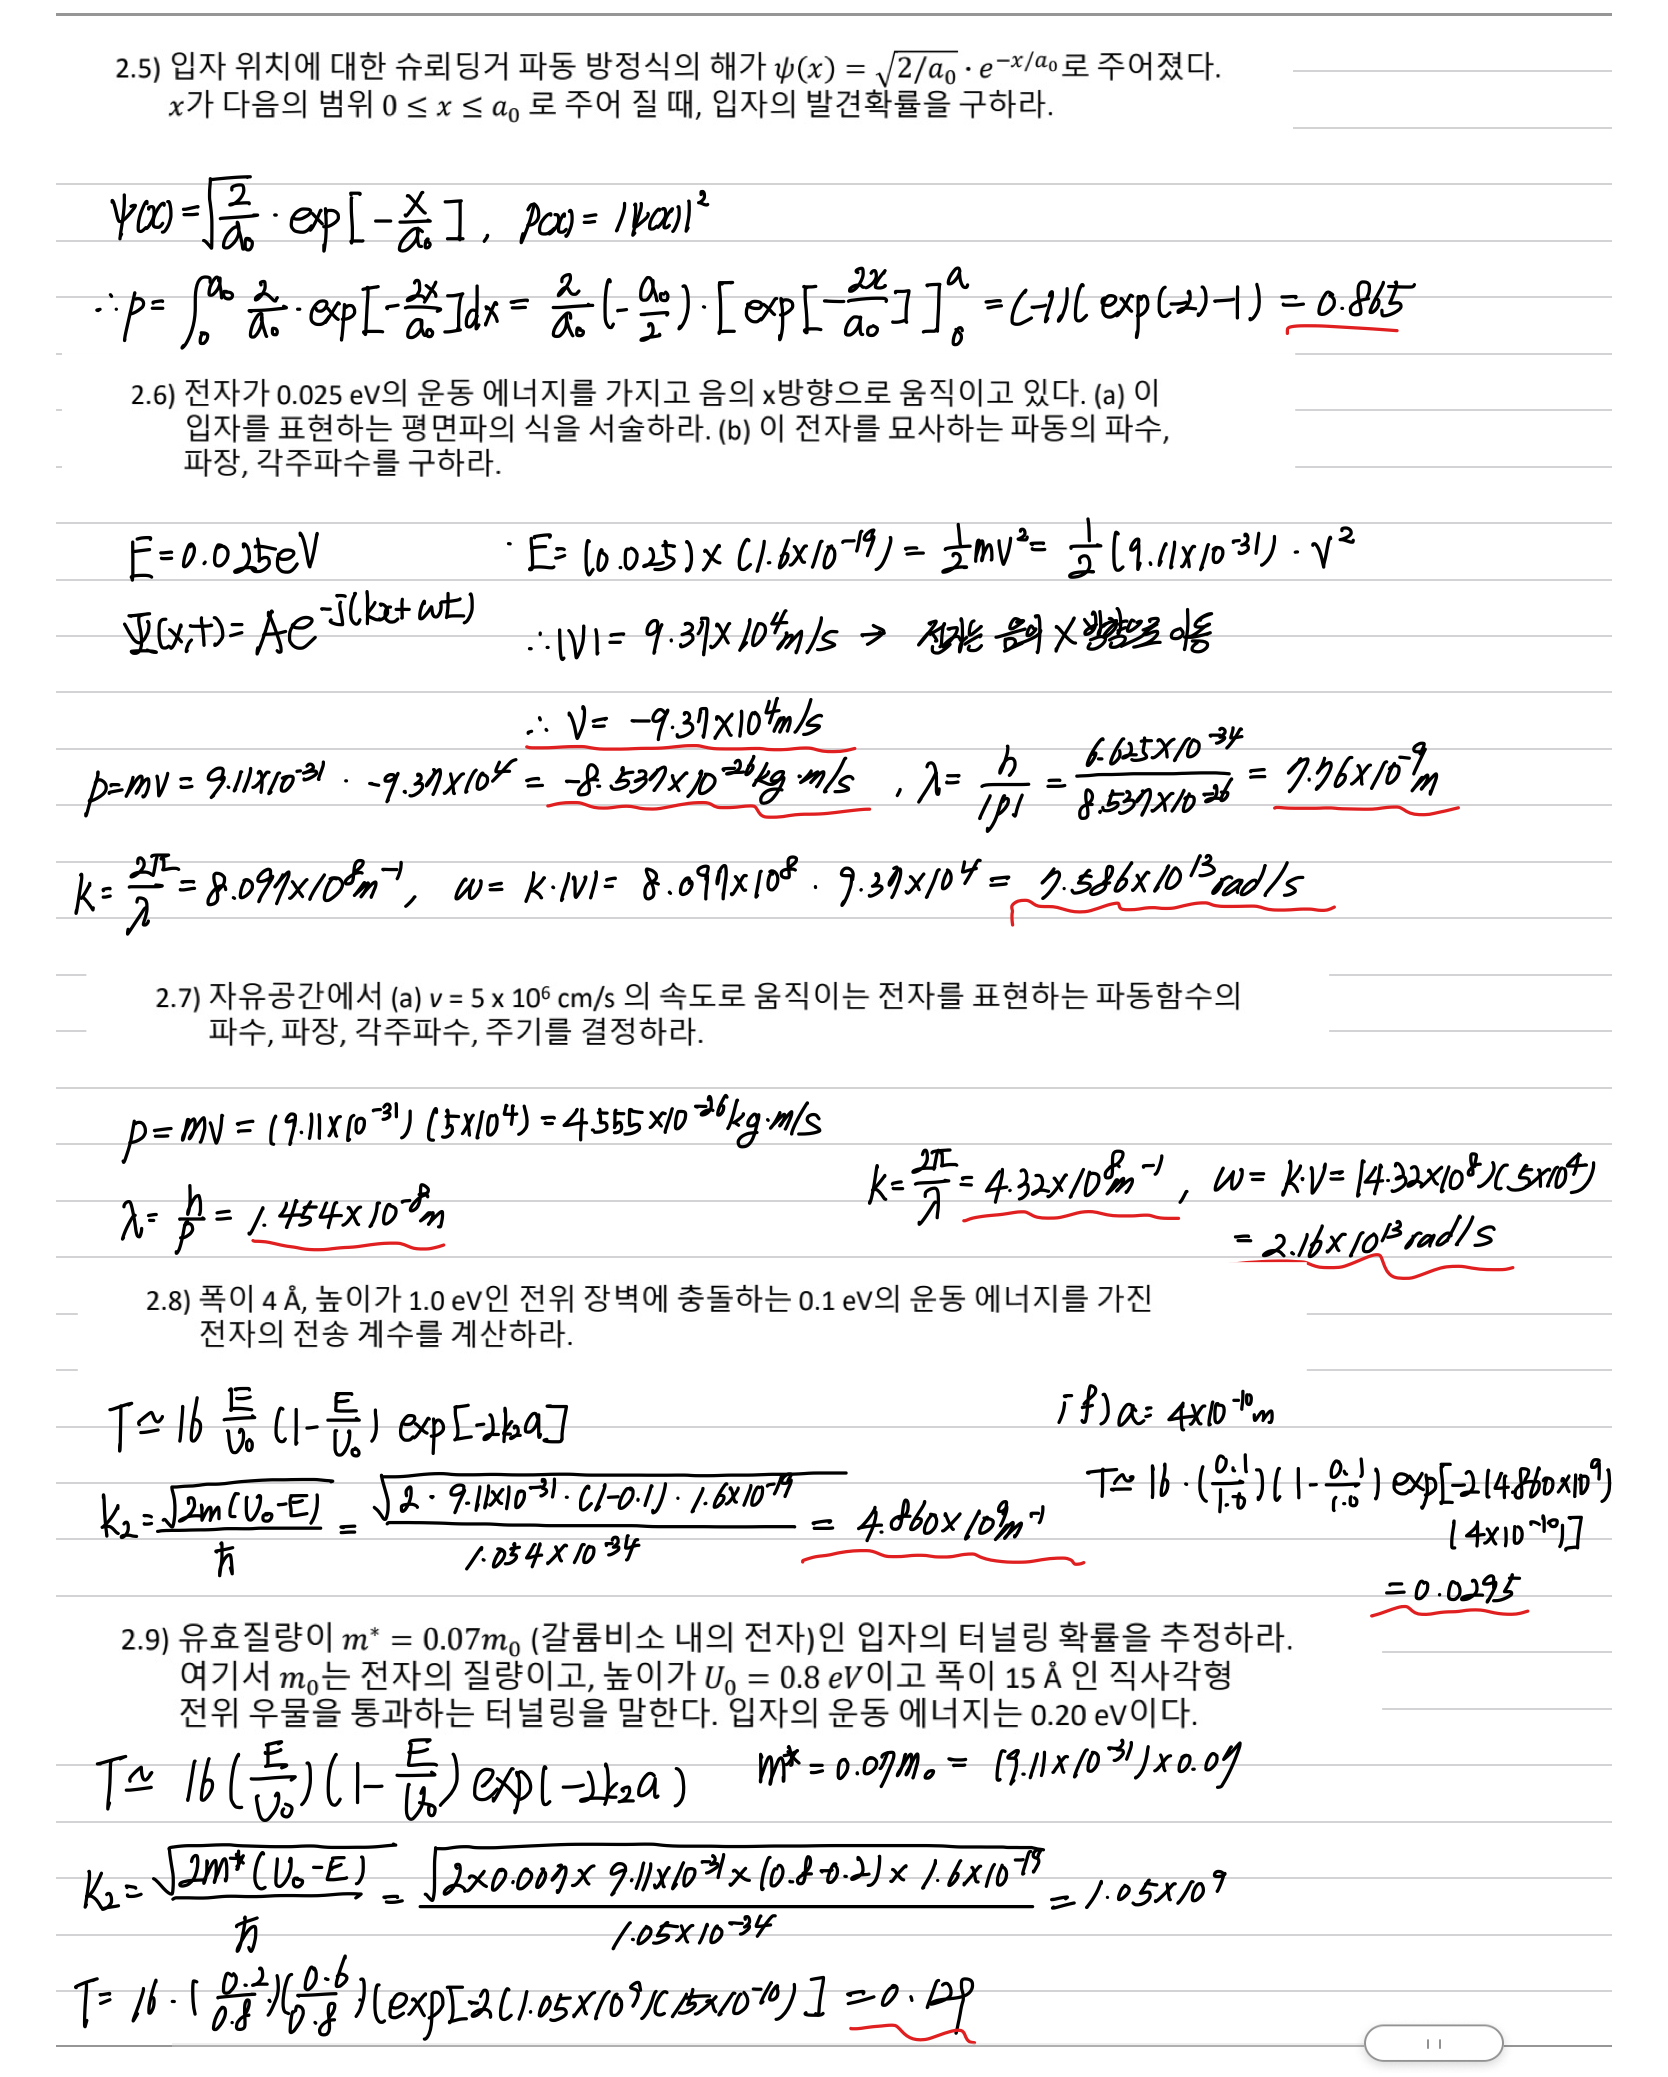 2.5) 입자 위치에 대한 슈뢰딩거 파동 방정식의 해가 ψ(x) = √(2/a₀) · e^(−x/a₀) 로 주어졌다.
x가 다음의 범위 0 ≤ x ≤ a₀ 로 주어 질 때, 입자의 발견확률을 구하라.
ψ(x) = √(2/a₀) · exp[−x/a₀], p(x) = |ψ(x)|²
∴ p = ∫₀^a₀ 2/a₀ · exp[−2x/a₀]dx = 2/a₀ (−a₀/2) · [exp[−2x/a₀]]₀^a = (−1)(exp(−2)−1) = 0.865
2.6) 전자가 0.025 eV의 운동 에너지를 가지고 음의 x방향으로 움직이고 있다. (a) 이
입자를 표현하는 평면파의 식을 서술하라. (b) 이 전자를 묘사하는 파동의 파수,
파장, 각주파수를 구하라.
E = 0.025eV · E = (0.025) × (1.6×10⁻¹⁹) = 1/2 mv² = 1/2 (9.11×10⁻³¹) · v²
Ψ(x,t) = Ae^(−j(kx+ωt)) ∴ |V| = 9.37×10⁴m/s → 전자는 음의 X 방향으로 이동
∴ V = −9.37×10⁴m/s
p = mv = 9.11×10⁻³¹ · −9.37×10⁴ = −8.537×10⁻²⁶kg·m/s , λ = h/|p| = 6.625×10⁻³⁴/8.537×10⁻²⁶ = 7.76×10⁻⁹m
k = 2π/λ = 8.097×10⁸m⁻¹, ω = k·|v| = 8.097×10⁸ · 9.37×10⁴ = 7.586×10¹³rad/s
2.7) 자유공간에서 (a) v = 5 x 10⁶ cm/s 의 속도로 움직이는 전자를 표현하는 파동함수의
파수, 파장, 각주파수, 주기를 결정하라.
p = mv = (9.11×10⁻³¹) (5×10⁴) = 4.555×10⁻²⁶kg·m/s
λ = h/p = 1.454×10⁻⁸m k = 2π/λ = 4.32×10⁸m⁻¹, ω = k·V = (4.32×10⁸)(5×10⁴)
= 2.16×10¹³rad/s
2.8) 폭이 4 Å, 높이가 1.0 eV인 전위 장벽에 충돌하는 0.1 eV의 운동 에너지를 가진
전자의 전송 계수를 계산하라.
T ≃ 16 E/U₀ (1−E/U₀) exp[−2k₂a] if) a = 4×10⁻¹⁰m
k₂ = √(2m(U₀−E))/ħ = √(2 · 9.11×10⁻³¹ · (1−0.1) · 1.6×10⁻¹⁹)/1.054×10⁻³⁴ = 4.860×10⁹m⁻¹ T ≃ 16 · (0.1/1.0)(1−0.1/1.0) exp[−2(4.860×10⁹)
(4×10⁻¹⁰)]
= 0.0295
2.9) 유효질량이 m* = 0.07m₀ (갈륨비소 내의 전자)인 입자의 터널링 확률을 추정하라.
여기서 m₀는 전자의 질량이고, 높이가 U₀ = 0.8 eV이고 폭이 15 Å 인 직사각형
전위 우물을 통과하는 터널링을 말한다. 입자의 운동 에너지는 0.20 eV이다.
T ≃ 16(E/U₀)(1−E/U₀) exp(−2k₂a) m* = 0.07m₀ = (9.11×10⁻³¹)×0.07
K₂ = √(2m*(U₀−E))/ħ = √(2×0.007×9.11×10⁻³¹×(0.8−0.2)×1.6×10⁻¹⁹)/1.05×10⁻³⁴ = 1.05×10⁹
T = 16 · (0.2/0.8)(0.6/0.8)(exp[−2(1.05×10⁹)(15×10⁻¹⁰)] =